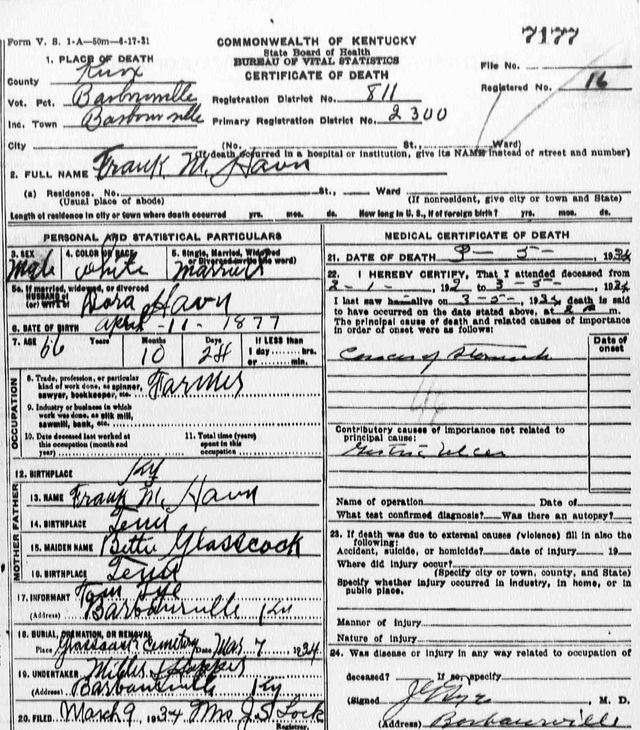 7177
Form V. S. 1-A—50m—6-17-31
COMMONWEALTH OF KENTUCKY
State Board of Health
BUREAU OF VITAL STATISTICS
CERTIFICATE OF DEATH
File No.
Registered No. 16
1. PLACE OF DEATH
County Knox
Vot. Pct. Barbourville Registration District No. 811
Inc. Town Barbourville Primary Registration District No. 2300
City (No. St., Ward)
(If death occurred in a hospital or institution, give its NAME instead of street and number)
2. FULL NAME Frank M. Hawn
(a) Residence. No. St., Ward
(Usual place of abode) (If nonresident, give city or town and State)
Length of residence in city or town where death occurred yrs. mos. ds. How long in U. S., if of foreign birth? yrs. mos. ds.
PERSONAL AND STATISTICAL PARTICULARS
3. SEX 4. COLOR OR RACE 5. Single, Married, Widowed or Divorced (write the word)
Male White Married
5a. If married, widowed, or divorced
HUSBAND of
(or) WIFE of Dora Hawn
6. DATE OF BIRTH April -11- 1877
7. AGE 56 Years Months 10 Days 24 If LESS than
1 day hrs.
or min.
OCCUPATION
8. Trade, profession, or particular
kind of work done, as spinner,
sawyer, bookkeeper, etc. Farmer
9. Industry or business in which
work was done, as silk mill,
sawmill, bank, etc.
10. Date deceased last worked at
this occupation (month and
year)
11. Total time (years)
spent in this
occupation
12. BIRTHPLACE Ky
MOTHER FATHER
13. NAME Frank M. Hawn
14. BIRTHPLACE Tenn
15. MAIDEN NAME Bettie Glasscock
16. BIRTHPLACE Tenn
17. INFORMANT Tom
(Address) Barbourville Ky
18. BURIAL, CREMATION, OR REMOVAL
Place Glasscock Cemetery Date Mar 7 1934
19. UNDERTAKER
(Address) Barbourville Ky
20. FILED March 9 1934 Mrs J.S. Lock
Registrar.
MEDICAL CERTIFICATE OF DEATH
21. DATE OF DEATH 3-5- , 1934
22. I HEREBY CERTIFY, That I attended deceased from
, 19 to 3-5- , 1934
I last saw h alive on 3-5- , 1934 death is said
to have occurred on the date stated above, at m.
The principal cause of death and related causes of importance
in order of onset were as follows:
Date of
onset
Cancer of Stomach
Contributory causes of importance not related to
principal cause:
Gastric Ulcer
Name of operation Date of
What test confirmed diagnosis? Was there an autopsy?
23. If death was due to external causes (violence) fill in also the
following:
Accident, suicide, or homicide? date of injury 19
Where did injury occur?
(Specify city or town, county, and State)
Specify whether injury occurred in industry, in home, or in
public place.
Manner of injury
Nature of injury
24. Was disease or injury in any way related to occupation of
deceased? If so, specify
(Signed) M. D.
(Address) Barbourville